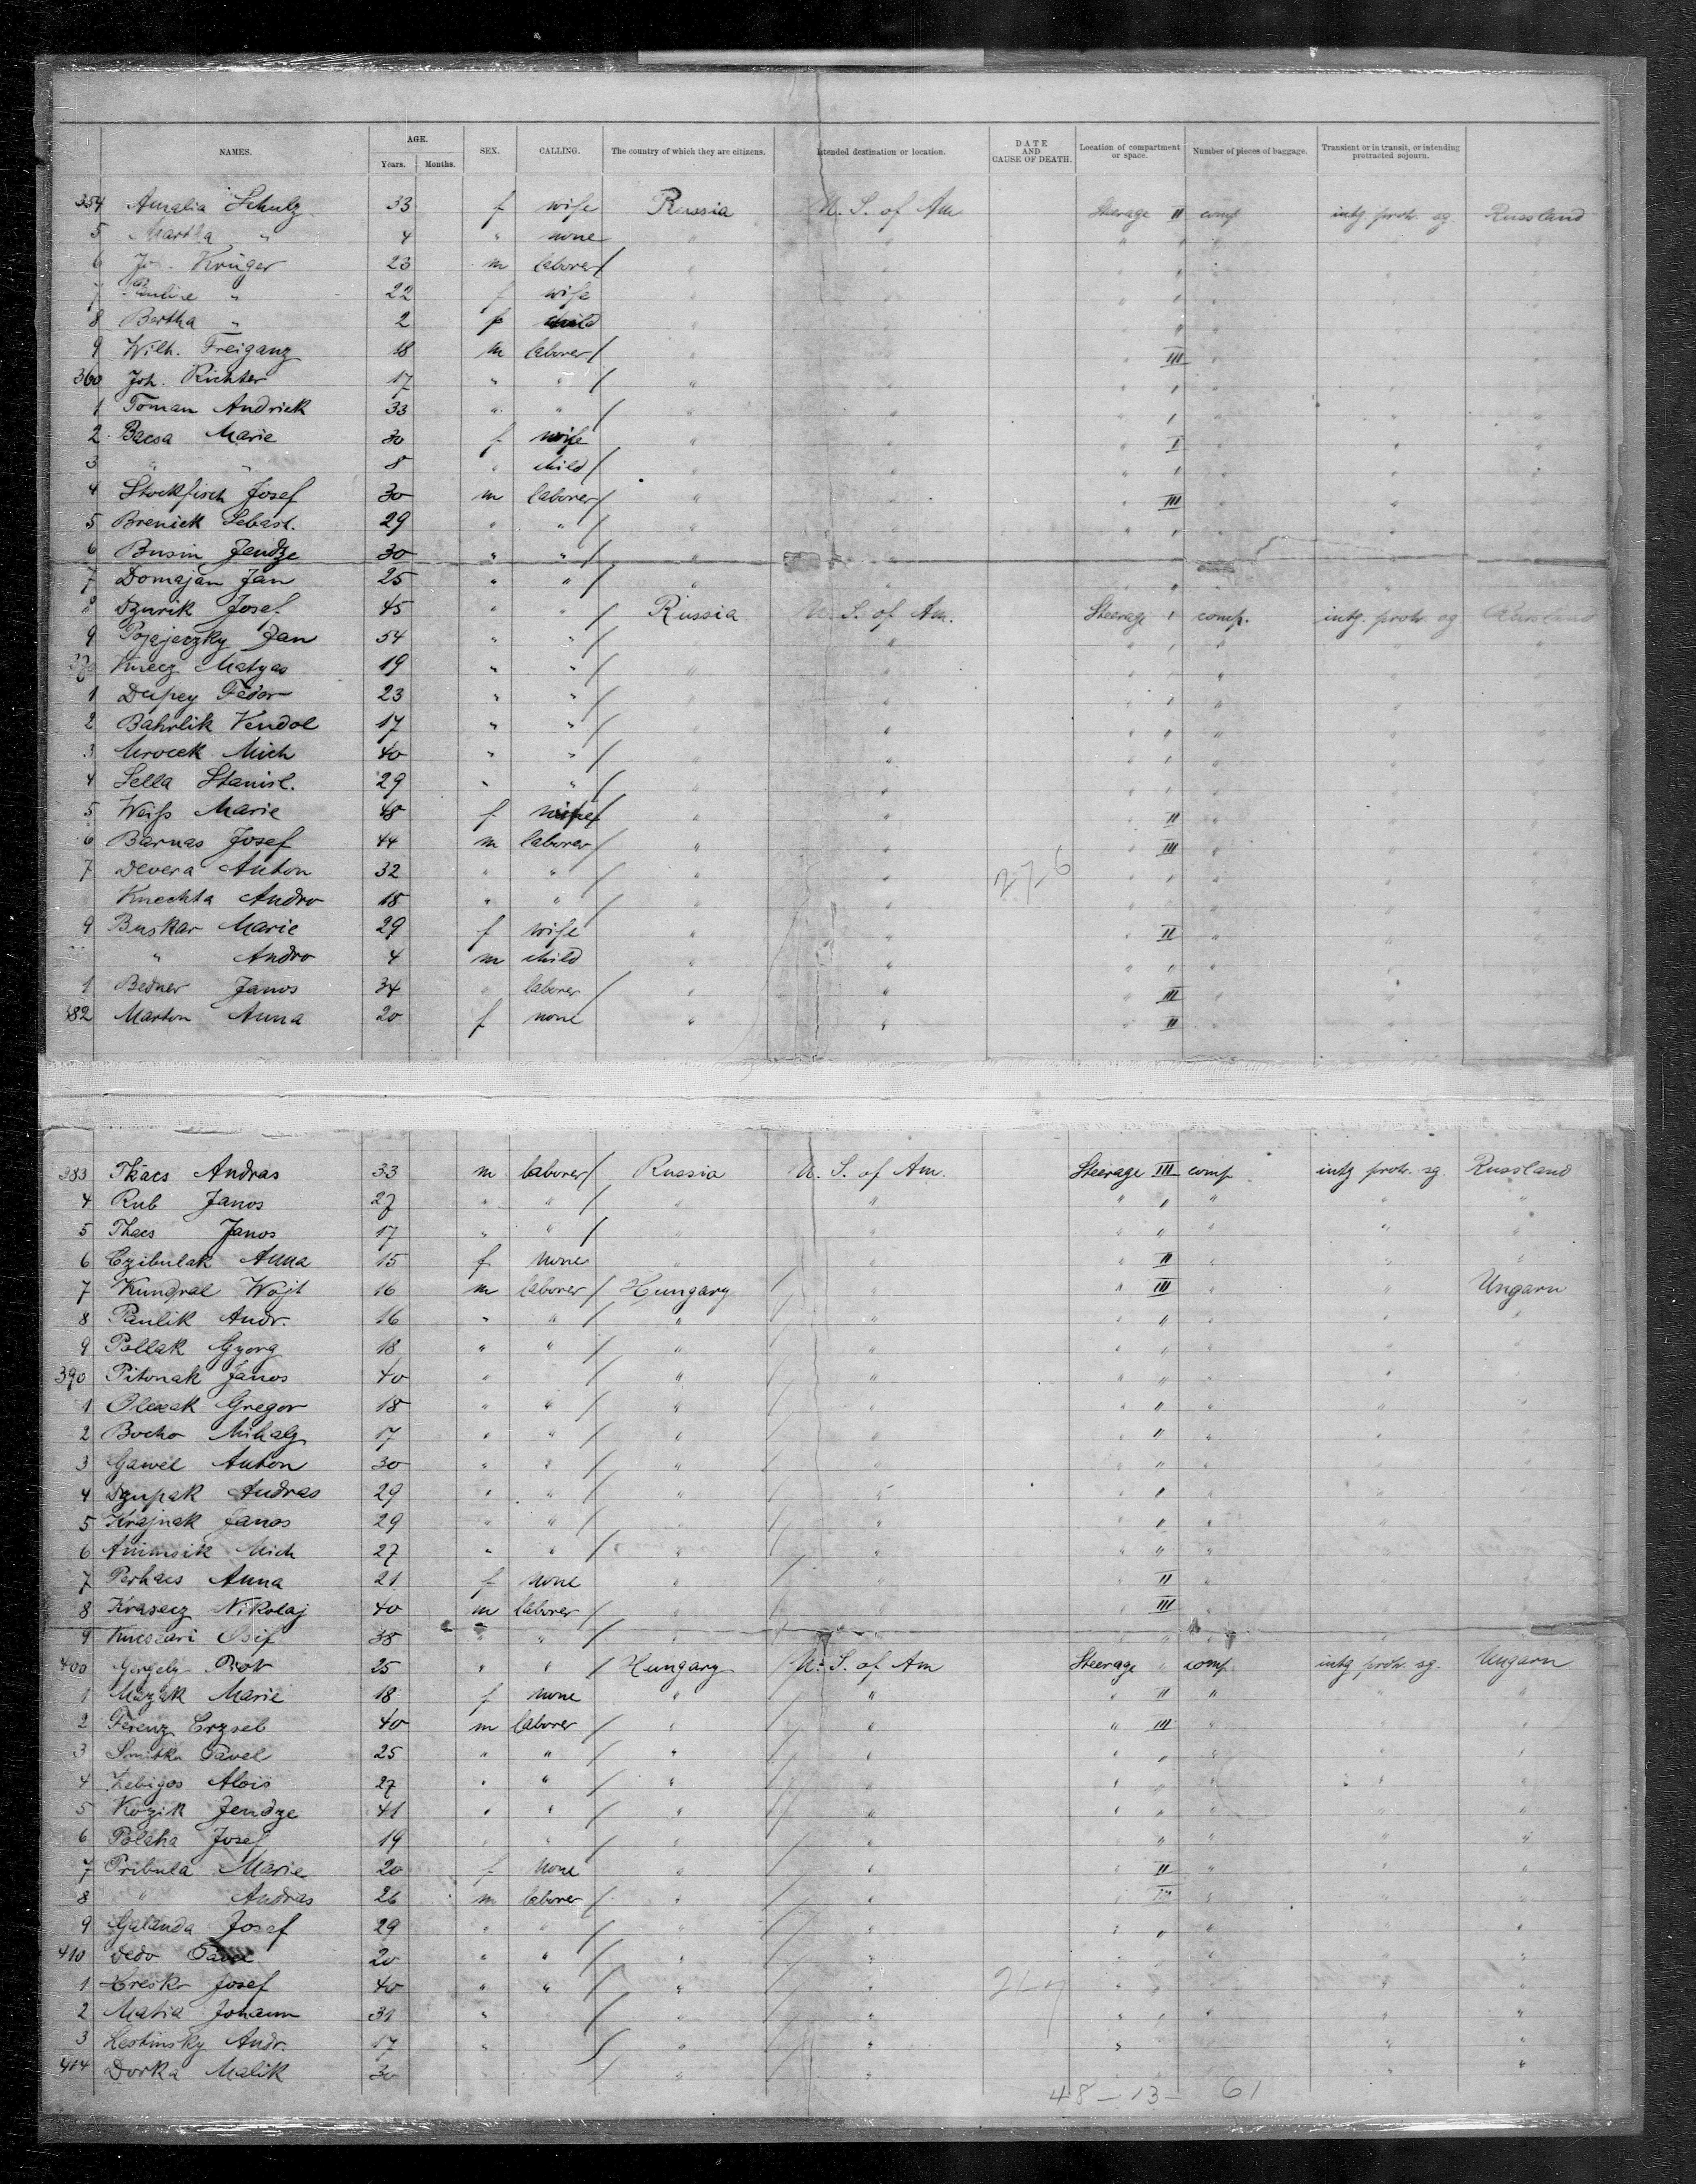 NAMES. AGE. Years. Months. SEX. CALLING. The country of which they are citizens. Intended destination or location. DATE AND CAUSE OF DEATH. Location of compartment or space. Number of pieces of baggage. Transient or in transit, or intending protracted sojourn.
354 Amalia Schulz 33 f wife Russia U. S. of Am Steerage II comp intg protr. sg. Russland
5 Martha " 4 " none " " " " " " "
6 Krüger 23 m laborer / " " " " " " "
7 Pauline " 22 f wife " " " " " " "
8 Bertha " 2 f child " " " " " " "
9 Wilh. Freiganz 18 m laborer / " " " III " " "
360 Joh. Richter 17 " " / " " " " " " "
1 Toman Andrick 33 " " / " " " " " " "
2 Bacsa Marie 30 f wife " " " I " " "
3 " " 8 " child / " " " " " " "
4 Stockfisch Josef 30 m laborer / " " " III " " "
5 Brenick Sebast. 29 " " / " " " " " " "
6 Busin Jendze 30 " " / " " " " " " "
7 Domajan Jan 25 " " / " " " " " " "
8 Dzurik Josef 45 " " / Russia U. S. of Am. Steerage " comp. intg. protr. sg Russland
9 Pojejeczky Jan 54 " " / " " " " " " "
370 Knecz Matyas 19 " " / " " " " " " "
1 Dupey Fedor 23 " " / " " " " " " "
2 Bahrlik Vendol 17 " " / " " " " " " "
3 Mrocek Mich 40 " " / " " " " " " "
4 Sella Stanisl. 29 " " / " " " " " " "
5 Weiss Marie 48 f wife / " " " II " " "
6 Barnas Josef 44 m laborer / " " " III " " "
7 Devera Anton 32 " " / " " 276 " " " " "
Knechta Andro 18 " " / " " " " " " "
9 Buskar Marie 29 f wife " " " II " " "
" Andro 4 m child " " " " " " "
1 Bedner Janos 34 " laborer / " " " III " " "
382 Marton Anna 20 f none " " " II " " "
383 Tkacs Andras 33 m laborer / Russia U. S. of Am. Steerage III comp intg protr. sg. Russland
4 Rub Janos 27 " " / " " " " " " "
5 Thacs Janos 17 " " / " " " " " " "
6 Czibulak Anna 15 f none " " " II " " "
7 Kundral Wojt 16 m laborer / Hungary / " " III " " Ungarn
8 Paulik Andr. 16 " " / " / " " " " " "
9 Pollak Gyorg 18 " " / " / " " " " " "
390 Pitonak Janos 40 " / " / " " " " " "
1 Olexak Gregor 18 " " / " / " " " " " "
2 Bocko Mihaly 17 " " / " / " " " " " "
3 Gawel Anton 30 " " / " / " " " " " "
4 Dzupak Andras 29 " " / " / " " " " " "
5 Krajnak Janos 29 " " / " / " " " " " "
6 Animsik Mich 27 " " / " / " " " " " "
7 Perhacs Anna 21 f none " / " " II " " "
8 Krasecz Nikolaj 40 m laborer / " / " " III " " "
9 Kucszari Osif 38 " " / " / " " " " " "
400 Gergely Piotr 25 " " / Hungary U. S. of Am Steerage " comp intg protr. sg. Ungarn
1 Mazak Marie 18 f none " / " " II " " "
2 Ferenz Erzseb 40 m laborer / " / " " III " " "
3 Smitka Pavel 25 " " / " / " " " " " "
4 Zebigos Alois 27 " " / " / " " " " " "
5 Kozik Jendze 41 " " / " / " " " " " "
6 Polaha Josef 19 " " / " / " " " " "
7 Pribula Marie 20 f none " / " " II " " "
8 " Andras 26 m laborer / " / " " III " " "
9 Galanda Josef 29 " " / " / " " " " " "
410 Dedo Pavel 20 " " / " / " " " " "
1 Kresko Josef 40 " " / " / " " " " "
2 Matia Johann 31 " / " / " " " " " "
3 Lestinsky Andr. 17 " / " / " " " "
414 Dorka Malik 30 / " / " " "
48 - 13 - 61